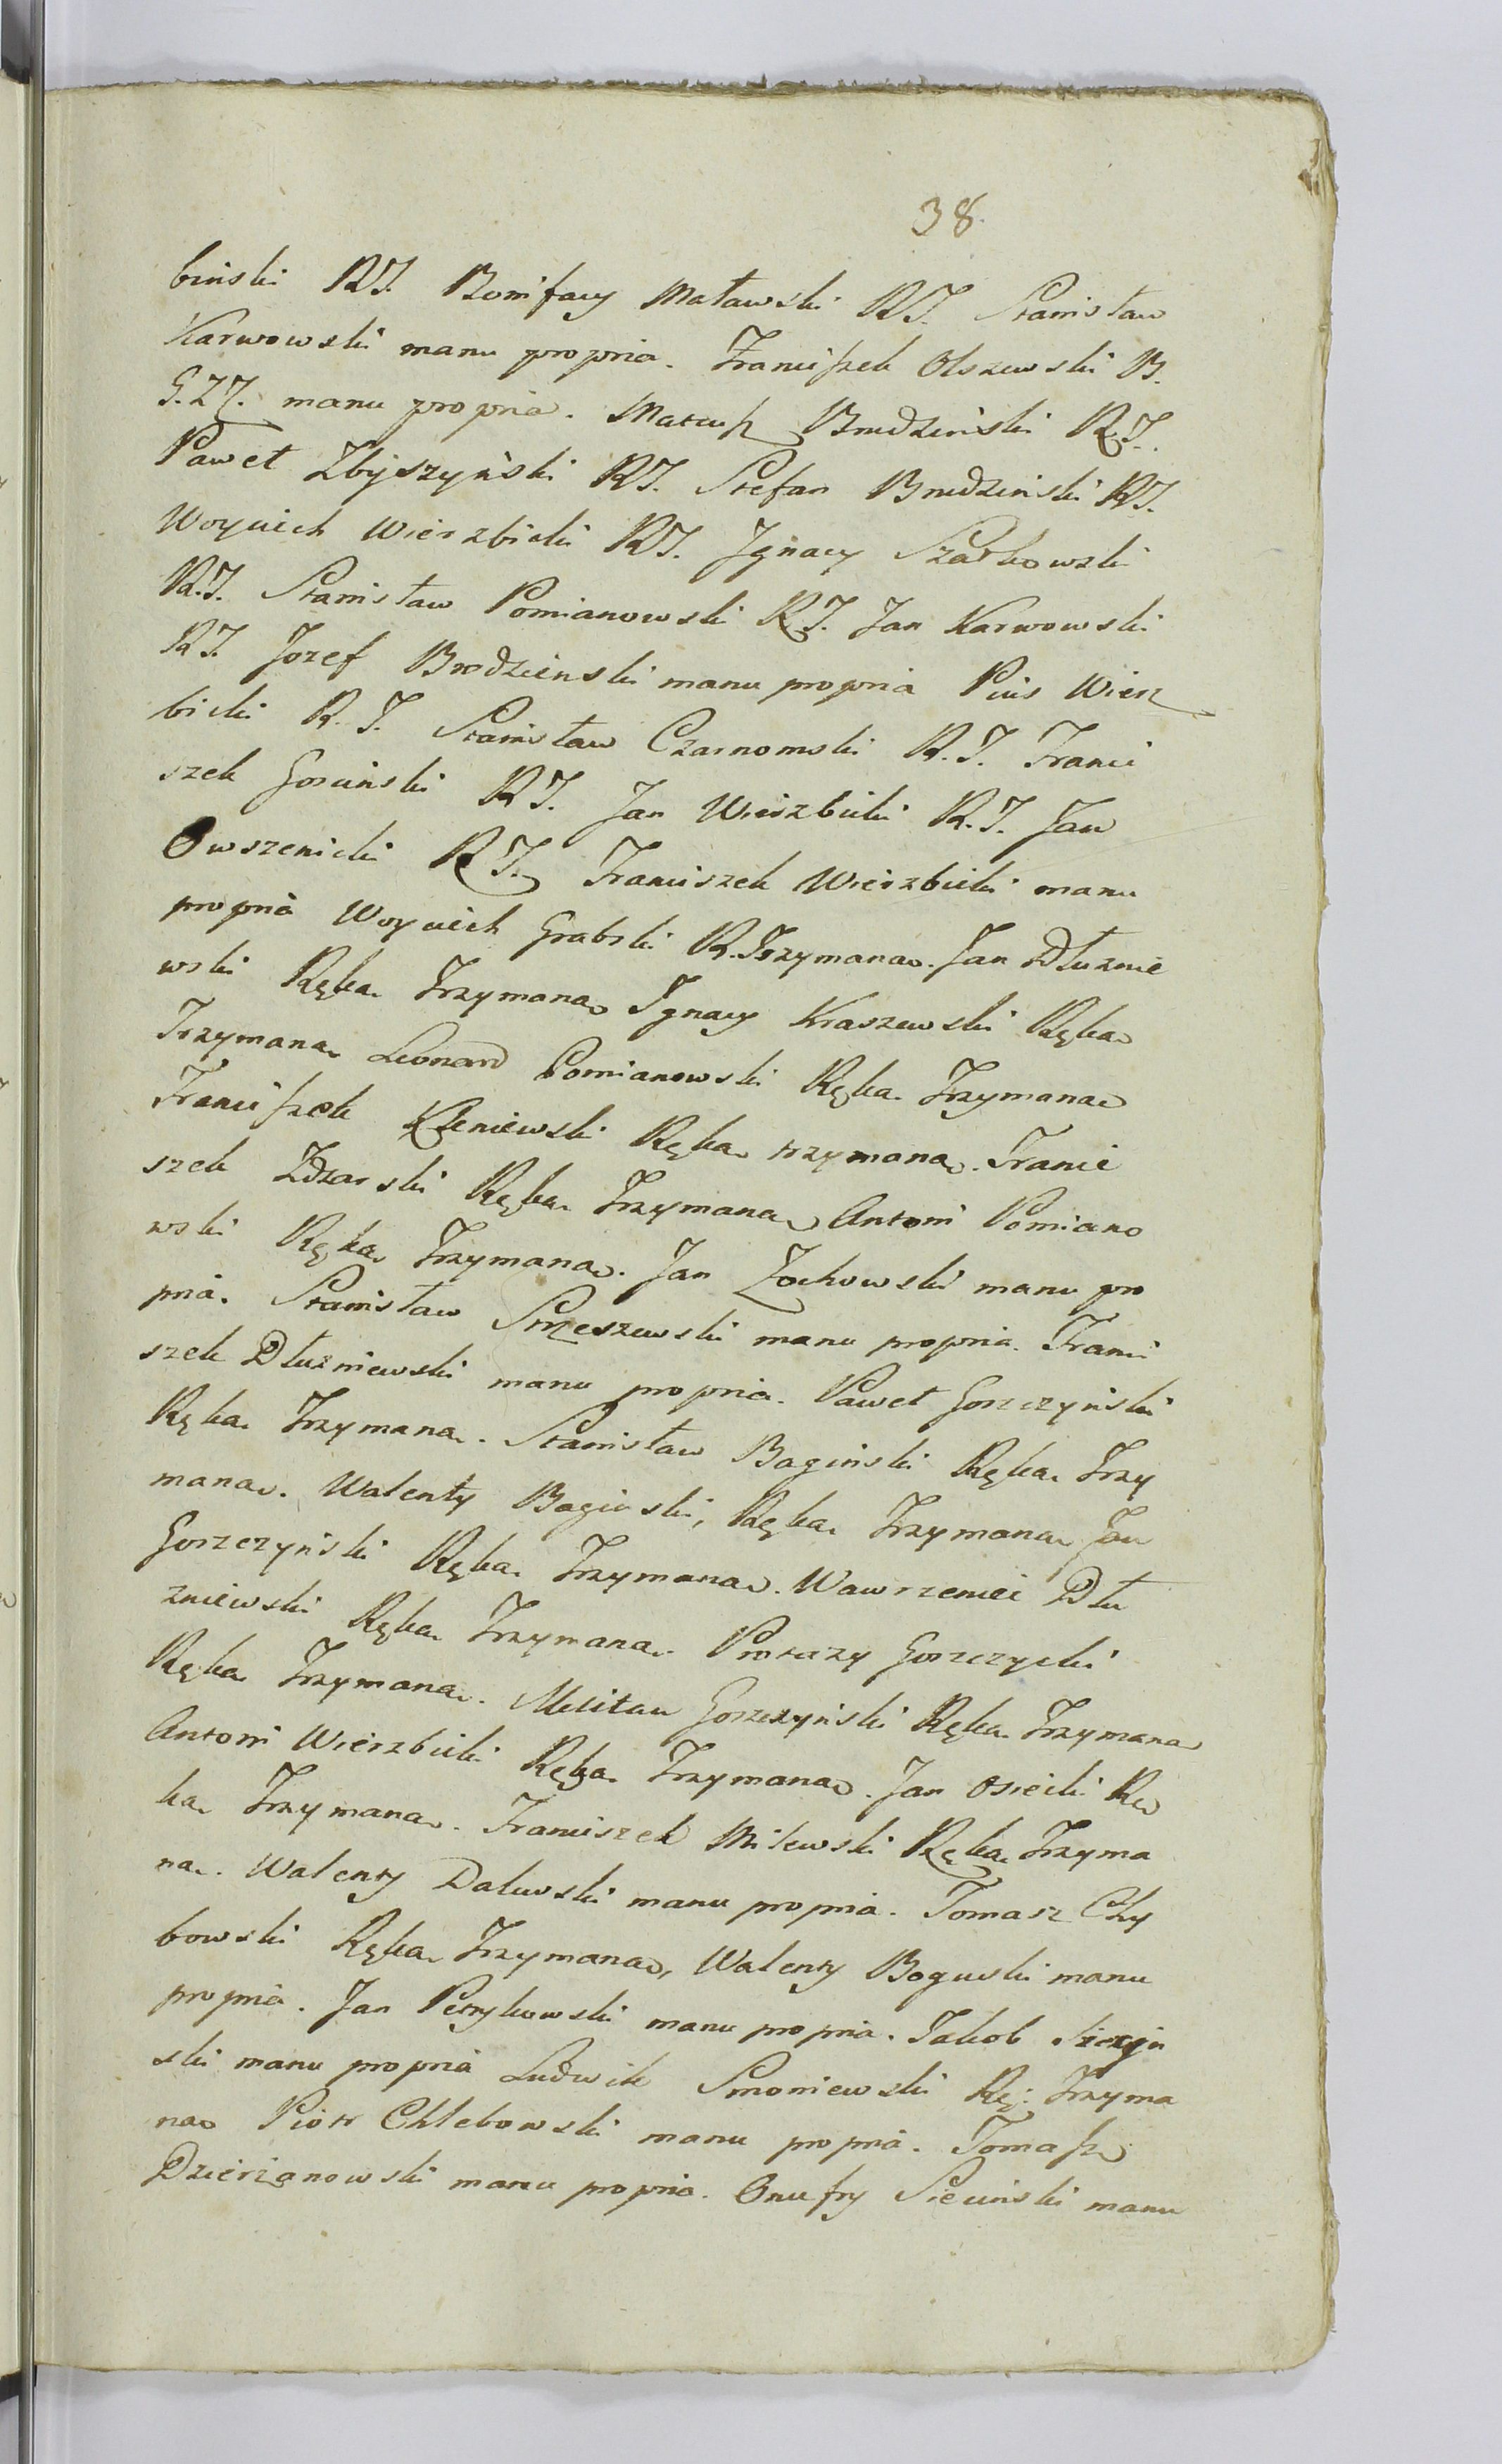 38.
biński RT. Bonifacy Matawski RT. Stanisław
Karwowski manu propria. Franciszek Olszewski B.
G.Z.Z. manu propria. Mateusz Brudziński R.T.
Paweł Zbyszyński RT. Stefan Brudziński RT.
Woyciech Wierzbicki RT. Jgnacy Szatkowski
R.T. Stanisław Pomianowski R.T. Jan Karwowski
RT. Jozef Brodzienski manu propria Pius Wierz
bicki R. T. Stanisław Czarnomski R.T. Franci
szek Gosciński RT. Jan Wierzbicki R.T. Jan
Owszenicki RT. Franciszek Wierzbicki manu
propria Woyciech Grabski R. Trzymana. Jan Dłuznie
wski Ręka Trzymana Jgnacy Kraszewski Ręka
Trzymana Leonard Pomianowski Ręka Trzymana
Franciszek Kleniewski Ręka trzymana. Franci
szek Zdzarski Ręka Trzymana Antoni Pomiano
wski Ręka Trzymana. Jan Zochowski manu pro
pria. Stanisław Smeszewski manu propria. Franci
szek Dłuzniewski manu propria. Paweł Gorzczyński
Ręka Trzymana. Stanisław Bagiński Ręka Trzy
mana. Walenty Bagiński, Ręka Trzymana Jan
Gorzczyński Ręka Trzymana. Wawrzeniec Dłu
zniewski Ręka Trzymana. Protazy Gorzczycki
Ręka Trzymana. Militan Gorzczyński Ręka Trzymana
Antoni Wierzbicki Ręka Trzymana. Jan Osiecki Rę
ka Trzymana. Franciszek Milewski Ręka Trzyma
na. Walenty Daluwski manu propria. Tomasz Chy
bowski Ręka Trzymana, Walenty Boguski manu
propria. Jan Petrykowski manu propria. Jakob
ski manu propria Ludwik Smoniewski Rę: Trzyma
na Piotr Chlebowski manu propria. Tomasz
Dzierżanowski manu propria. Onufry Sieciński manu